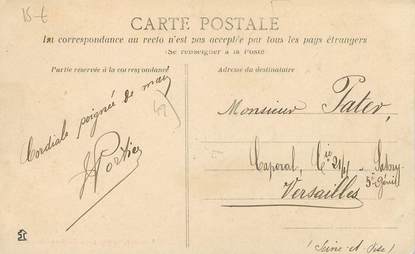 15-t
CARTE POSTALE
La correspondance au recto n'est pas acceptée par tous les pays étrangers
(Se renseigner à la Poste)
Partie réservée à la correspondance
Adresse du destinataire
Cordiale poignée de main
Portier
Monsieur Pater,
Caporal, Cie 21/1 Satory
5e Génie
Versailles
(Seine-et-Oise)